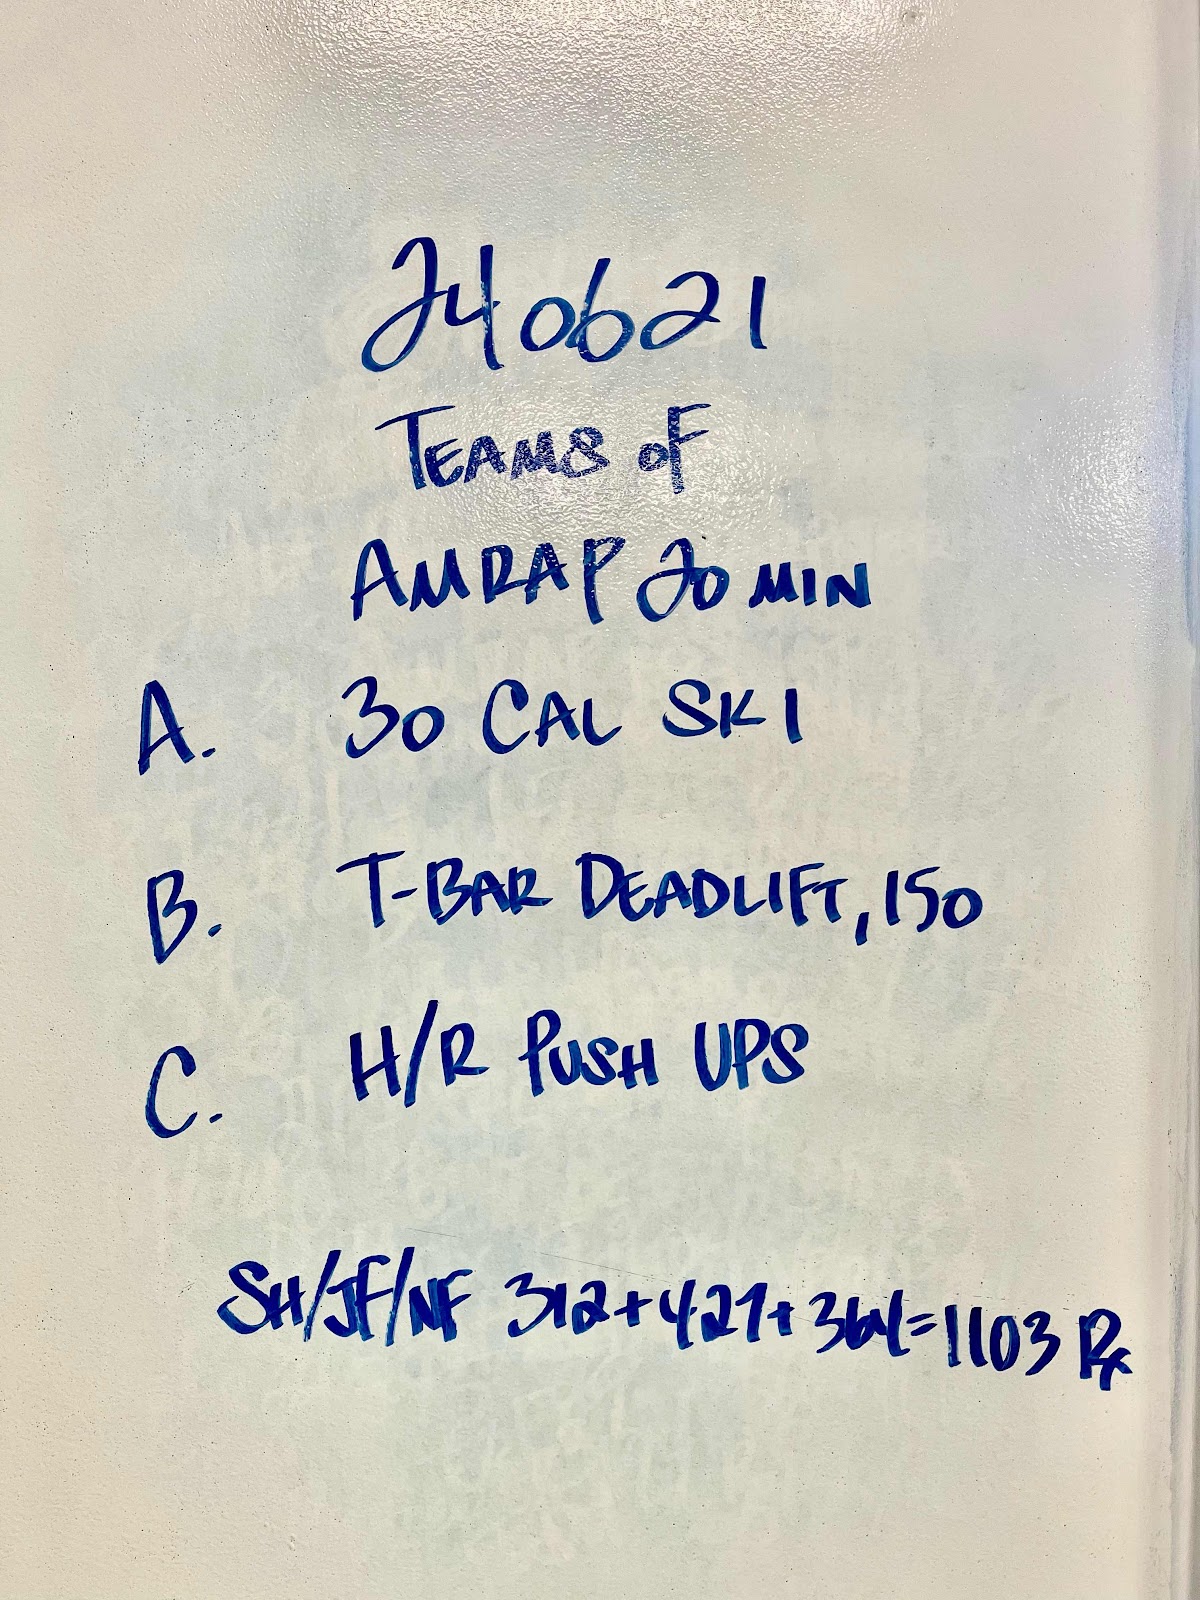 240621
TEAMS OF
AMRAP 20 MIN
A. 30 CAL SKI
B. T-BAR DEADLIFT, 150
C. H/R PUSH UPS
SH/JF/NF 312+427+364=1103 Rx